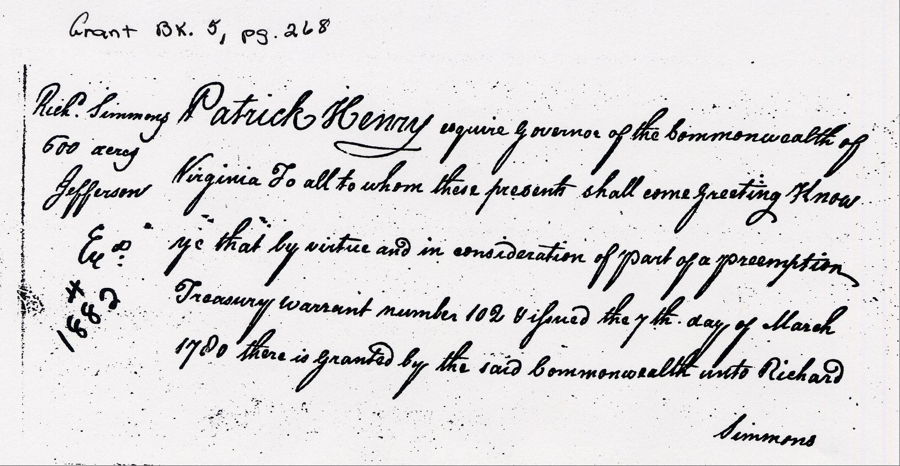 Grant Bk. 5, pg. 268
Richd. Simmons
600 acres
Jefferson
Exd.
4
1882
Patrick Henry esquire Governor of the Commonwealth of
Virginia To all to whom these presents shall come Greeting Know
ye that by virtue and in consideration of part of a preemption
Treasury warrant number 102 & issued the 7th. day of March
1780 there is granted by the said Commonwealth unto Richard
Simmons